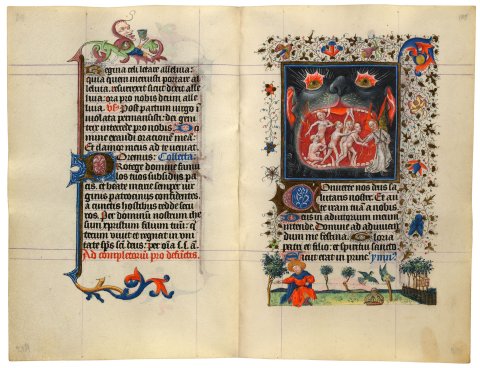 Regina celi letare alleluia:
quia quem meruisti portare al
leluia. resurrexit sicut dixit alle
luia. ora pro nobis deum alle
luia. vs Post partum virgo i
violata permansisti: dei geni
trix intercede pro nobis. Do
mine exaudi orationem meam.
Et clamor meus ad te veniat.
Oremus: Collecta:
Protege domine famu
los tuos subsidiis pa
cis: et beate marie semper vir
ginis patrociniis confidentes
a cunctis hostibus redde secu
ros. Per dominum nostrum ihe
sum xpistum filium tuum: qui
tecum vivit et regnat in uni
tate sps sci deus: per oia s. s. a.
Ad completorium pro defunctis.
Converte nos deus sa
lutaris noster. Et a
verte iram tuam a nobis.
Deus in adiutorium meum
intende. Domine ad adiuvan
dum me festina. Gloria
patri et filio: et spiritui sancto
Sicut erat in prin. ymn